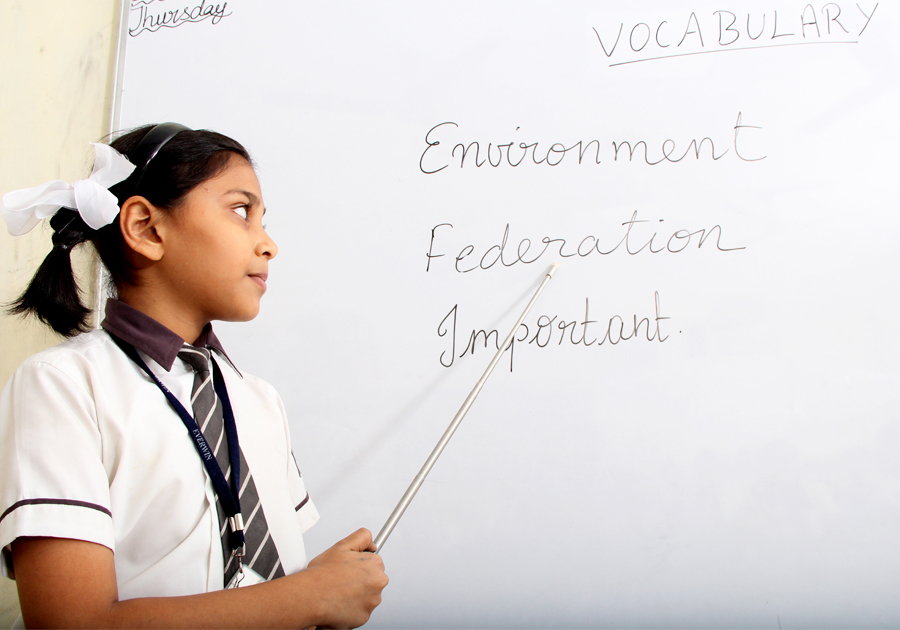 Thursday
VOCABULARY
Environment
Federation
Important.
EVERWIN